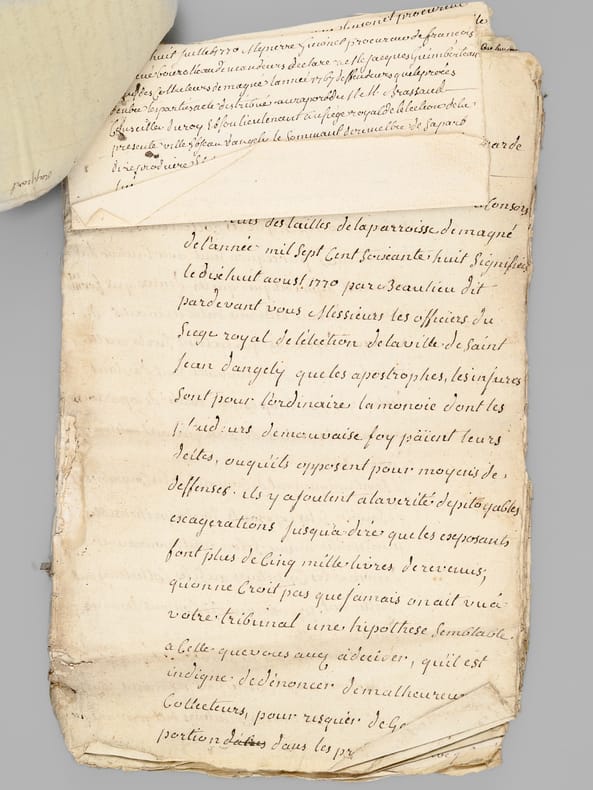 procureur
huit juillet 1770 Me pierre
procureur de françois
declare
Jacques Guimberteau
des Collecteurs de magné lannée 1767 deffendeurs que le proces
dentre les parties a été distribué au raport du Sr Brassaud
Conseiller du roy Lieutenant au siege royal de lelection de la
presente ville St Jean dangely le Sommant de remettre de sa part
produire
Consors
des tailles de la parroisse de magné
de l'année mil Sept Cent Soixante huit Signifiés
le dixhuit aoust 1770 par Beaulieu dit
pardevant vous Messieurs les officiers du
Siege royal de l'élection de la ville de Saint
Jean dangely que les apostrophes, les injures
Sont pour l'ordinaire la monoie dont les
de mauvaise foy païent leurs
dettes, ou qu'ils opposent pour moyens de
deffenses. ils y ajoutent a la verité de pitoyables
exagerations jusqu'a dire que les exposants
font plus de Cinq mille livres de revenus;
qu'on ne Croit pas que jamais on ait vu a
votre tribunal une hipothese Semblable
a Celle que vous avez a decider, qu'il est
indigne de dénoncer de malheureux
Collecteurs, pour risquer de
portion dans les
prochford